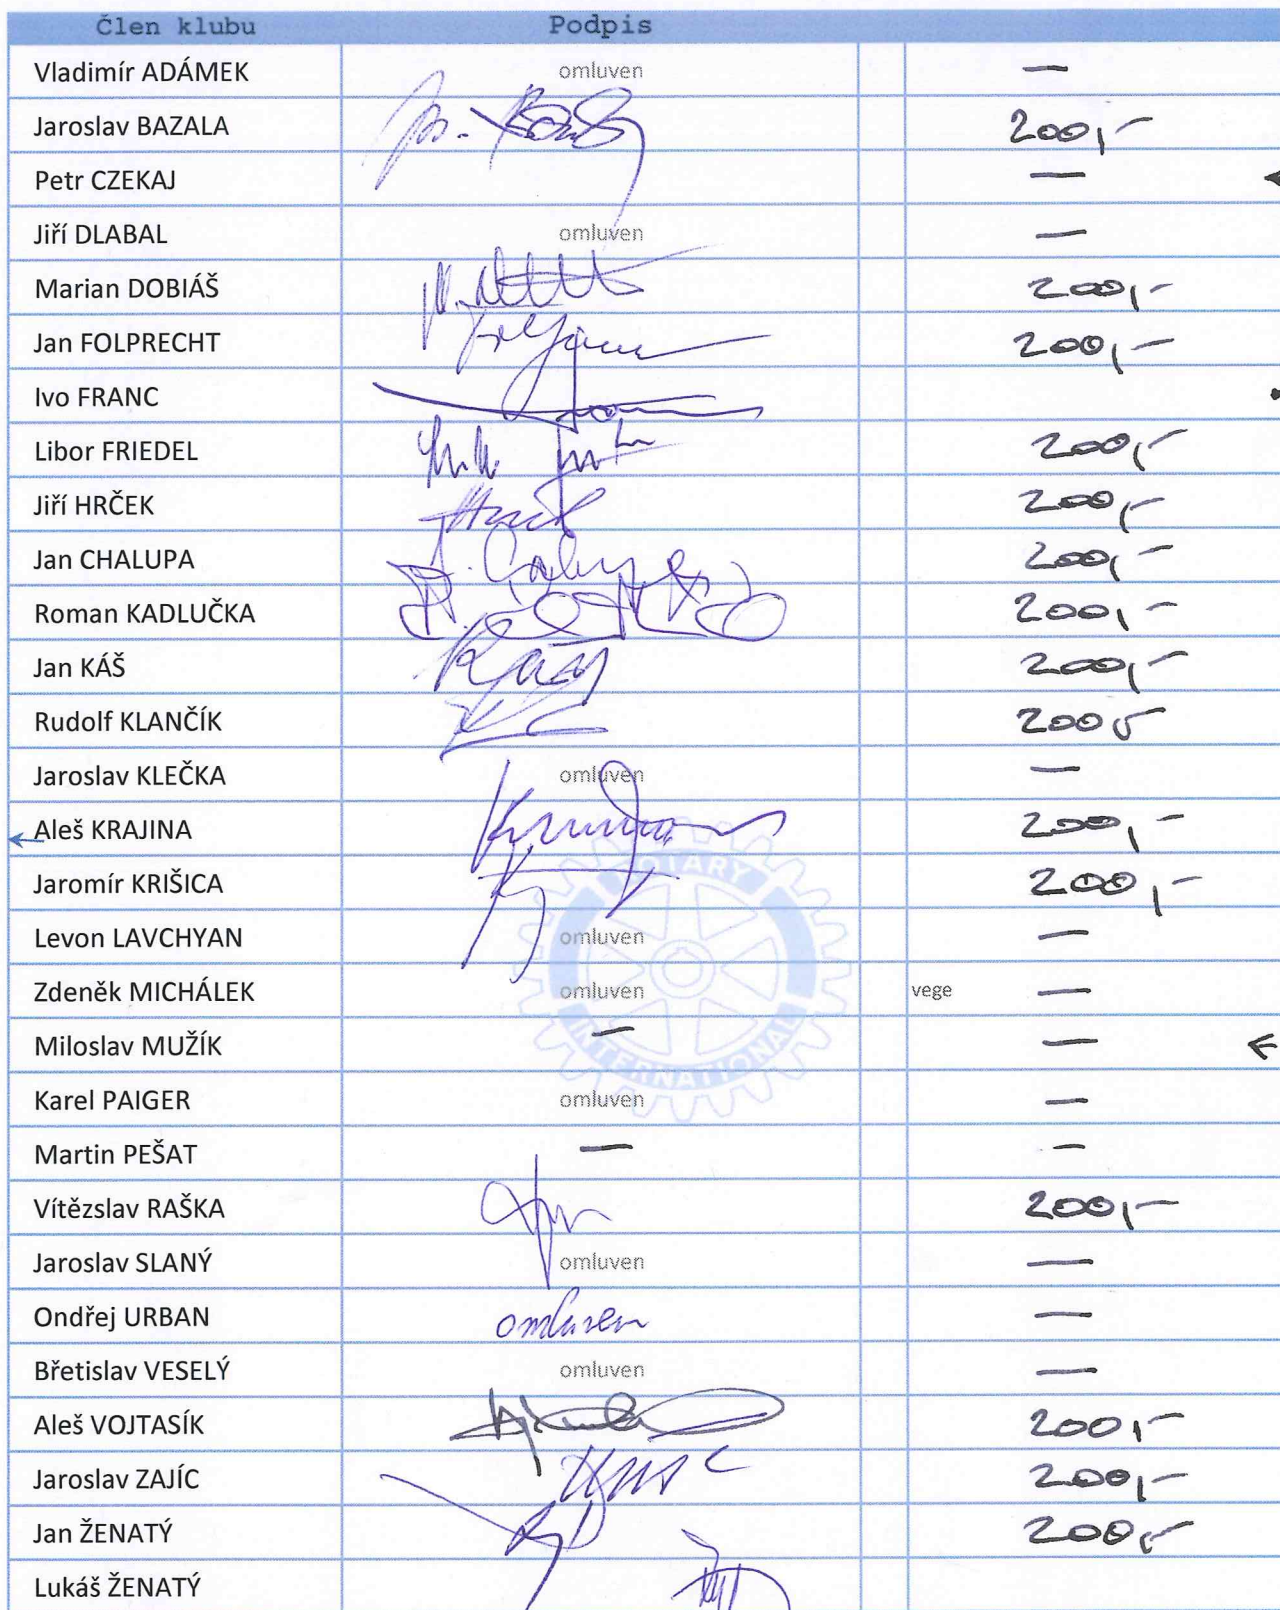 Člen klubu Podpis
Vladimír ADÁMEK omluven —
Jaroslav BAZALA 200,-
Petr CZEKAJ —
Jiří DLABAL omluven —
Marian DOBIÁŠ 200,-
Jan FOLPRECHT 200,-
Ivo FRANC
Libor FRIEDEL 200,-
Jiří HRČEK 200,-
Jan CHALUPA 200,-
Roman KADLUČKA 200,-
Jan KÁŠ 200,-
Rudolf KLANČÍK 200,-
Jaroslav KLEČKA omluven —
Aleš KRAJINA 200,-
Jaromír KRIŠICA 200,-
ROTARY
Levon LAVCHYAN omluven —
Zdeněk MICHÁLEK omluven vege —
Miloslav MUŽÍK — —
INTERNATIONAL
Karel PAIGER omluven —
Martin PEŠAT — —
Vítězslav RAŠKA 200,-
Jaroslav SLANÝ omluven —
Ondřej URBAN omluven —
Břetislav VESELÝ omluven —
Aleš VOJTASÍK 200,-
Jaroslav ZAJÍC 200,-
Jan ŽENATÝ 200,-
Lukáš ŽENATÝ